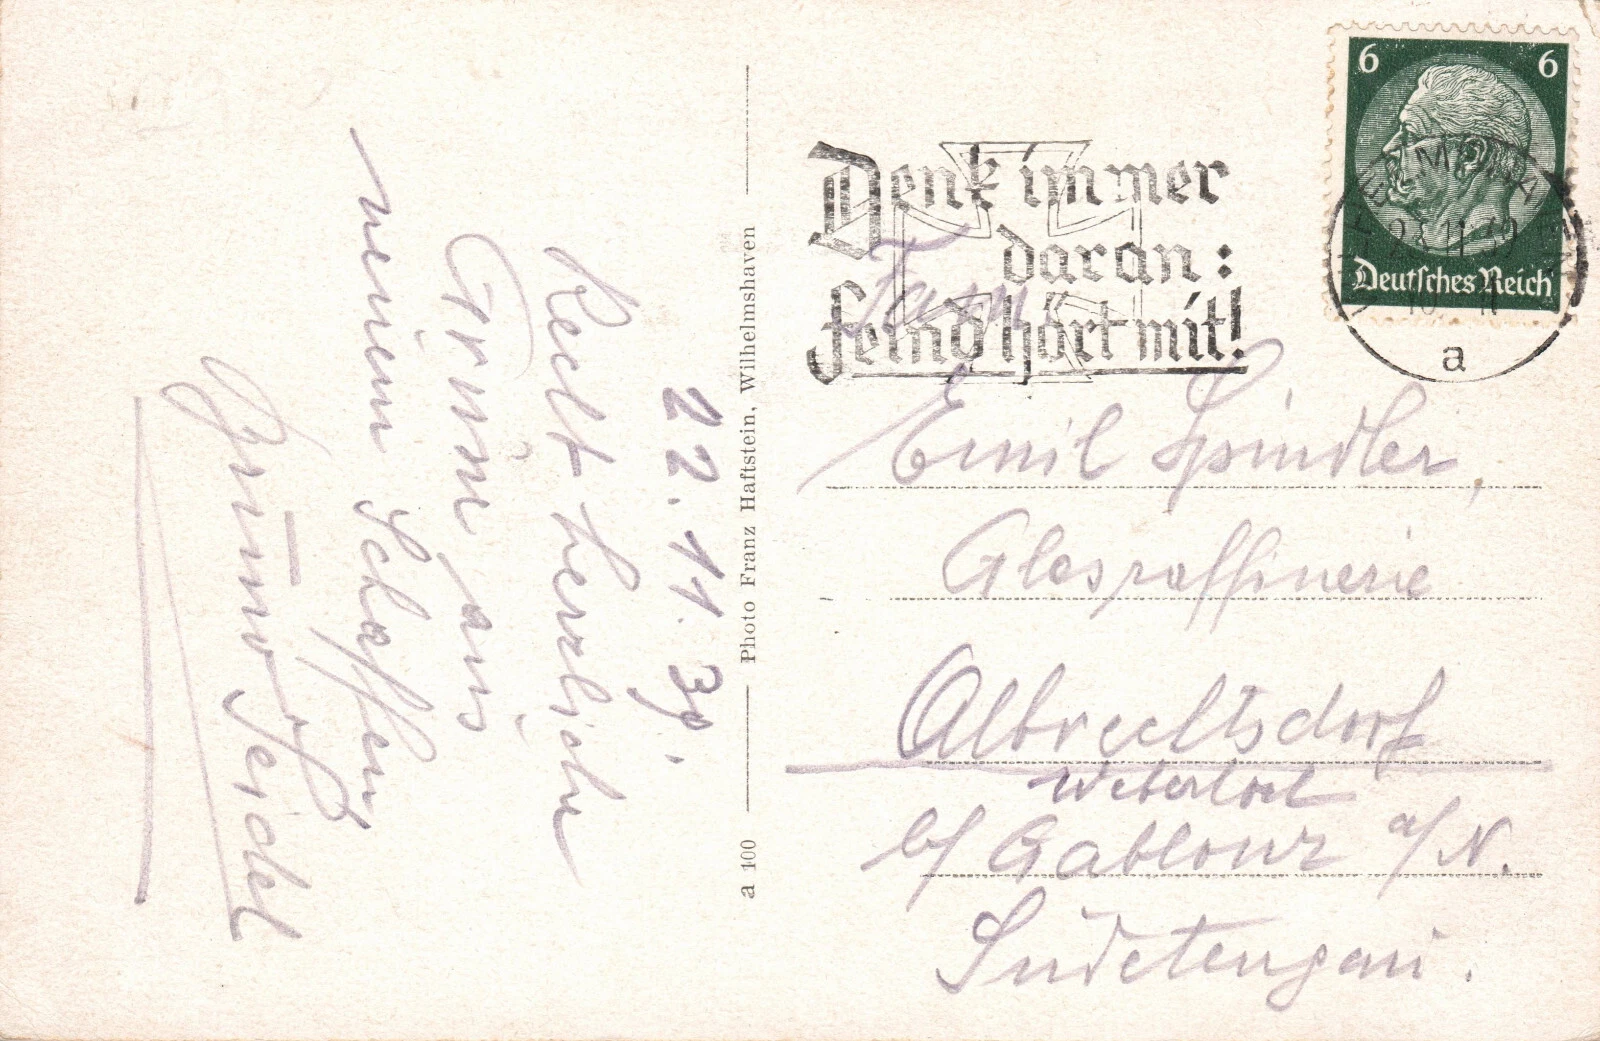 22.11.39.
Recht herzliche
Grüsse aus
meinem Schaffen
Bruno Seidel
a 100 Photo Franz Haftstein, Wilhelmshaven
Denk immer
daran:
Feind hört mit!
6 6
Deutsches Reich
a
Fam.
Emil Spindler,
Glasraffinerie
Albrechtsdorf
b/ Gablonz a/N.
Sudetengau.